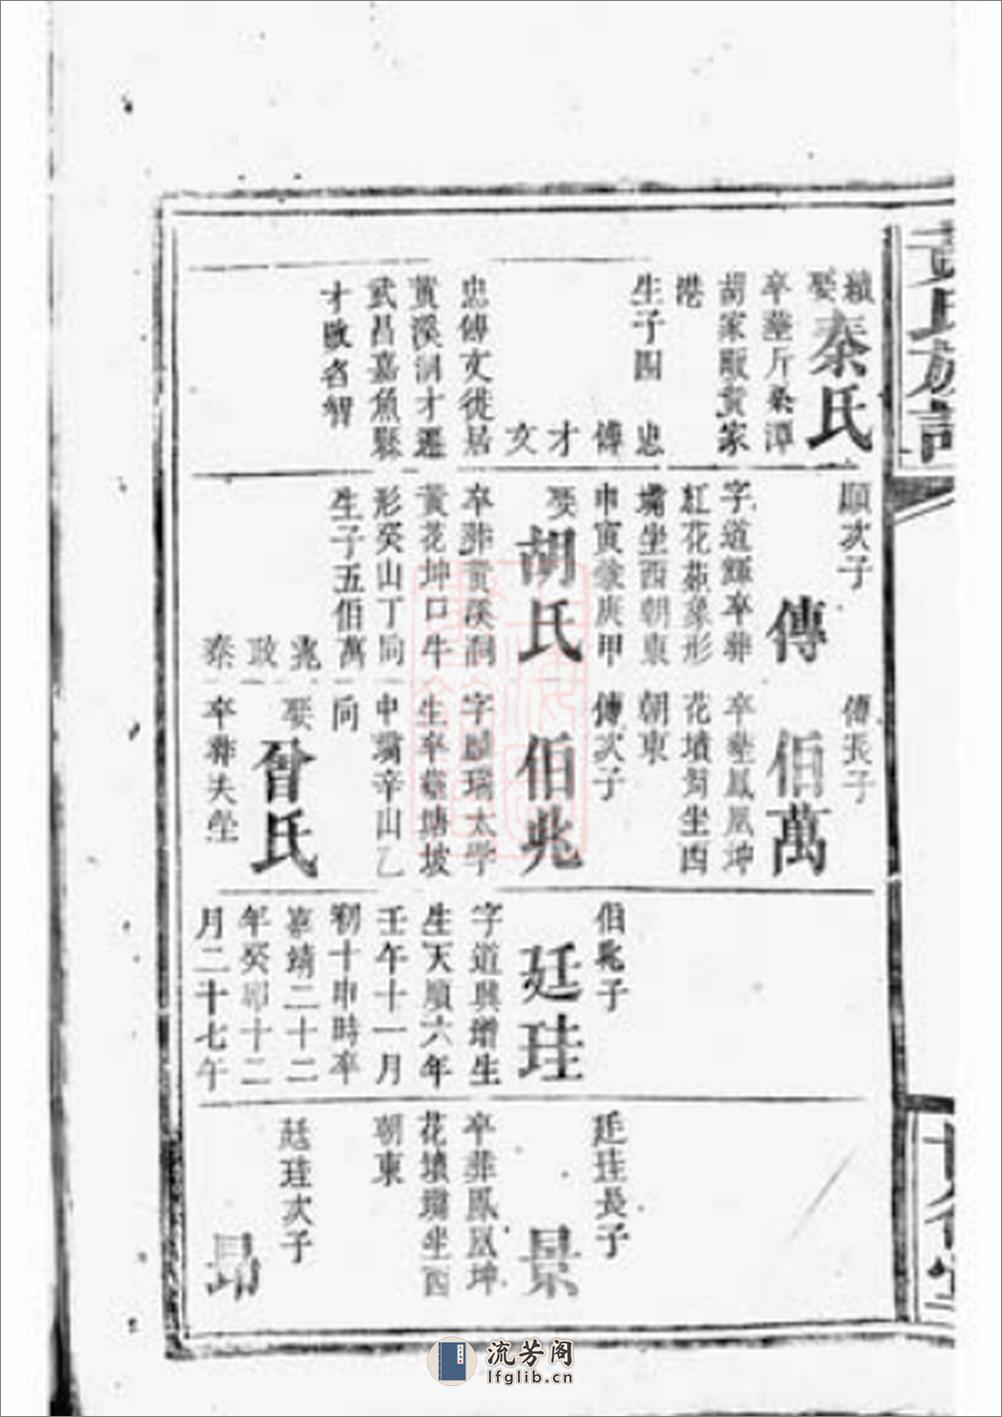 氏族
娶秦氏
卒塟斤桑潭
胡家畈黄家
港
生子四 忠
傳
才
文
忠傳文徙居
黄溪洞才遷
武昌嘉魚縣
才啟名智
顯次子
傳
字道輝卒葬
紅花苑象形
壩坐西朝東
申寅兼庚甲
娶胡氏
卒葬黄溪洞
黄花坤口牛
形癸山丁向
生子五伯萬
兆
政
泰
傳長子
伯萬
卒塟鳳凰坤
花墳坐酉
朝東
傳次子
伯兆
字麟瑞太学
生卒塟塘坡
中壩辛山乙
向
娶曾氏
卒葬夫塋
伯兆子
廷珪
字道興增生
生天順六年
壬午十一月
初十申時卒
嘉靖二十二
年癸卯十二
月二十七午
廷珪長子
景
卒葬鳳凰坤
花墳壩坐酉
朝東
廷珪次子
昻
流芳阁
lfglib.cn